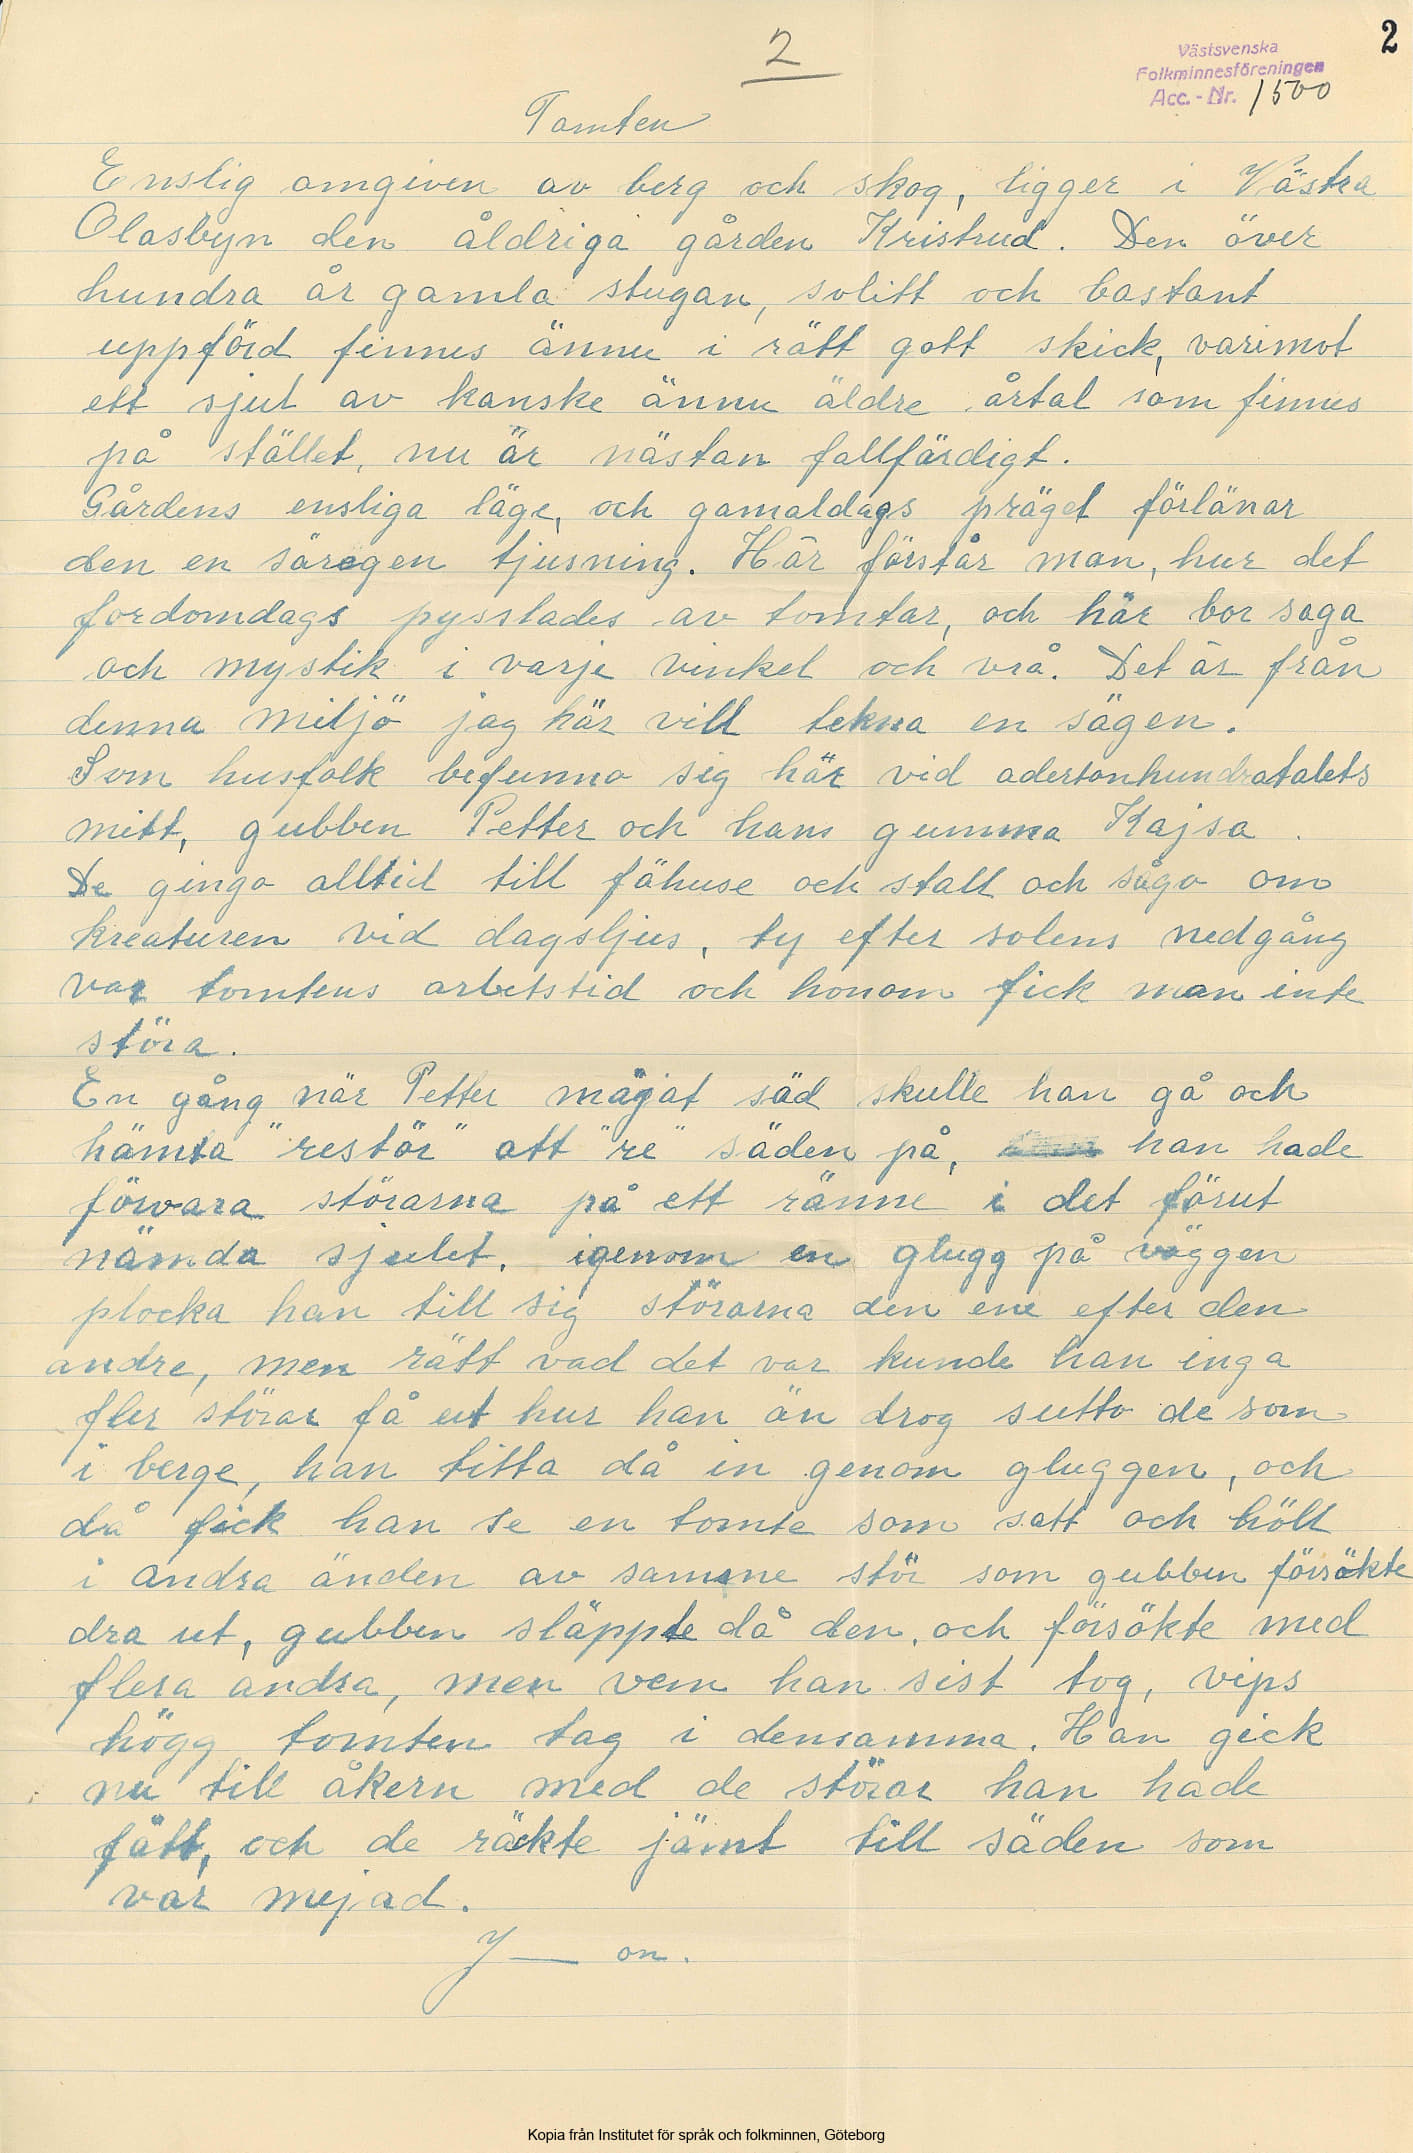 2
2
Västsvenska
Folkminnesföreningen
Acc.-Nr. 1500
Tomten
Enslig omgiven av berg och skog, ligger i Västra
Olasbyn den åldriga gården Kristrud. Den över
hundra år gamla stugan, solitt och bastant
uppförd finnes ännu i rätt gott skick, varimot
ett sjul av kanske ännu äldre årtal som finnes
på stället, nu är nästan fallfärdigt.
Gårdens ensliga läge, och gamaldags prägel förlänar
den en säregen tjusning. Här förstår man, hur det
fordomdags pysslades av tomtar, och här bor saga
och mystik i varje vinkel och vrå. Det är från
denna miljö jag här vill tekna en sägen.
Som husfolk befunno sig här vid adertonhundratalets
mitt, gubben Petter och hans gumma Kajsa.
De gingo alltid till fähuse och stall och sågo om
kreaturen vid dagsljus, ty efter solens nedgång
var tomtens arbetstid och honom fick man inte
störa.
En gång när Petter mäjat säd skulle han gå och
hämta "restör" att "re" säden på, han hade
förvara störarna på ett ränne i det förut
nämda sjulet. igenom en glugg på väggen
plocka han till sig störarna den ene efter den
andre, men rätt vad det var kunde han inga
fler störar få ut hur han än drog sutto de som
i berge, han titta då in genom gluggen, och
då fick han se en tomte som satt och höll
i andra änden av samme stör som gubben försökte
dra ut, gubben släppte då den, och försökte med
flera andra, men vem han sist tog, vips
högg tomten tag i densamma. Han gick
nu till åkern med de störar han hade
fått, och de räckte jämt till säden som
var mejad.
J — on.
Kopia från Institutet för språk och folkminnen, Göteborg